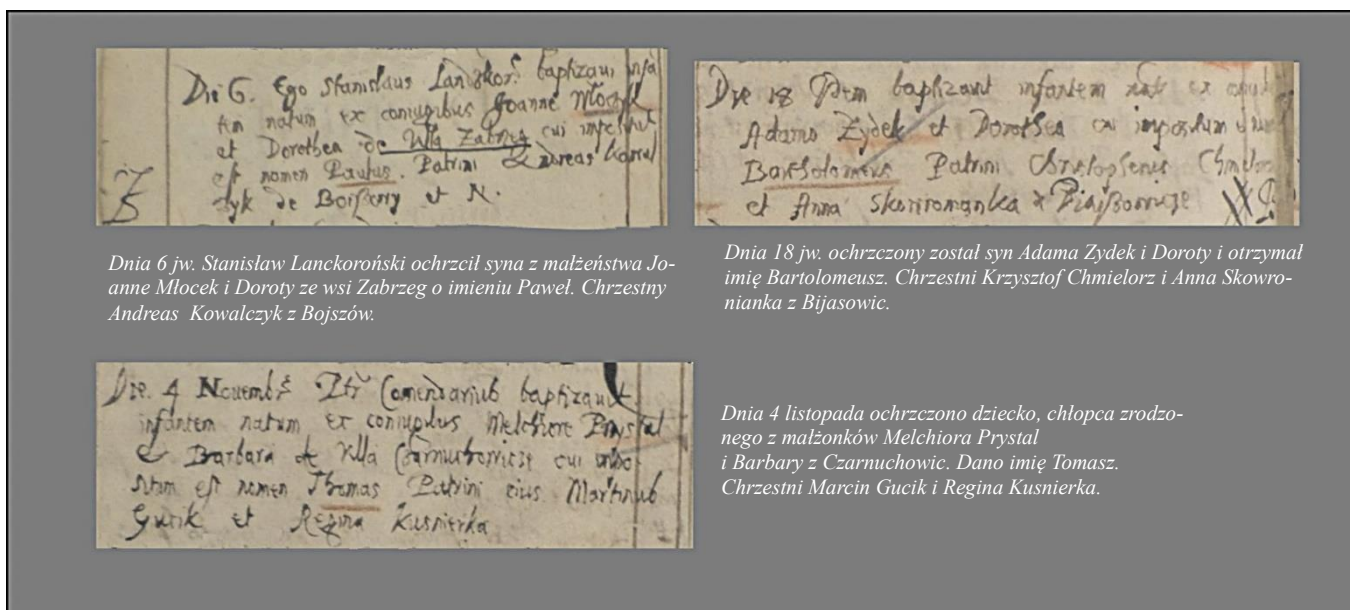 Die 6. Ego Stanislaus Landskor. baptizaui infa
tem natum ex coniugibus Joanne Młoczek
et Dorothea de Villa Zabrzeg cui impositum
est nomen Paulus. Patrini Andreas Kowal
czyk de et N.
Dnia 6 jw. Stanisław Lanckoroński ochrzcił syna z małżeństwa Jo-
anne Młocek i Doroty ze wsi Zabrzeg o imieniu Paweł. Chrzestny
Andreas Kowalczyk z Bojszów.
Die 18 Idem baptizauit infantem ex
Adamo Zydek et Dorothea cui impositum
Bartholomeus Patrini Christophenus
et Anna
Dnia 18 jw. ochrzczony został syn Adama Zydek i Doroty i otrzymał
imię Bartolomeusz. Chrzestni Krzysztof Chmielorz i Anna Skowro-
nianka z Bijasowic.
Die 4 Nouembr Comendarius baptizauit
infantem natum ex coniugibus Melchiore Prystal
et Barbara de Villa cui impo-
situm est nomen Thomas Patrini eius Martinus
Gucik et Regina Kusnierka
Dnia 4 listopada ochrzczono dziecko, chłopca zrodzo-
nego z małżonków Melchiora Prystal
i Barbary z Czarnuchowic. Dano imię Tomasz.
Chrzestni Marcin Gucik i Regina Kusnierka.